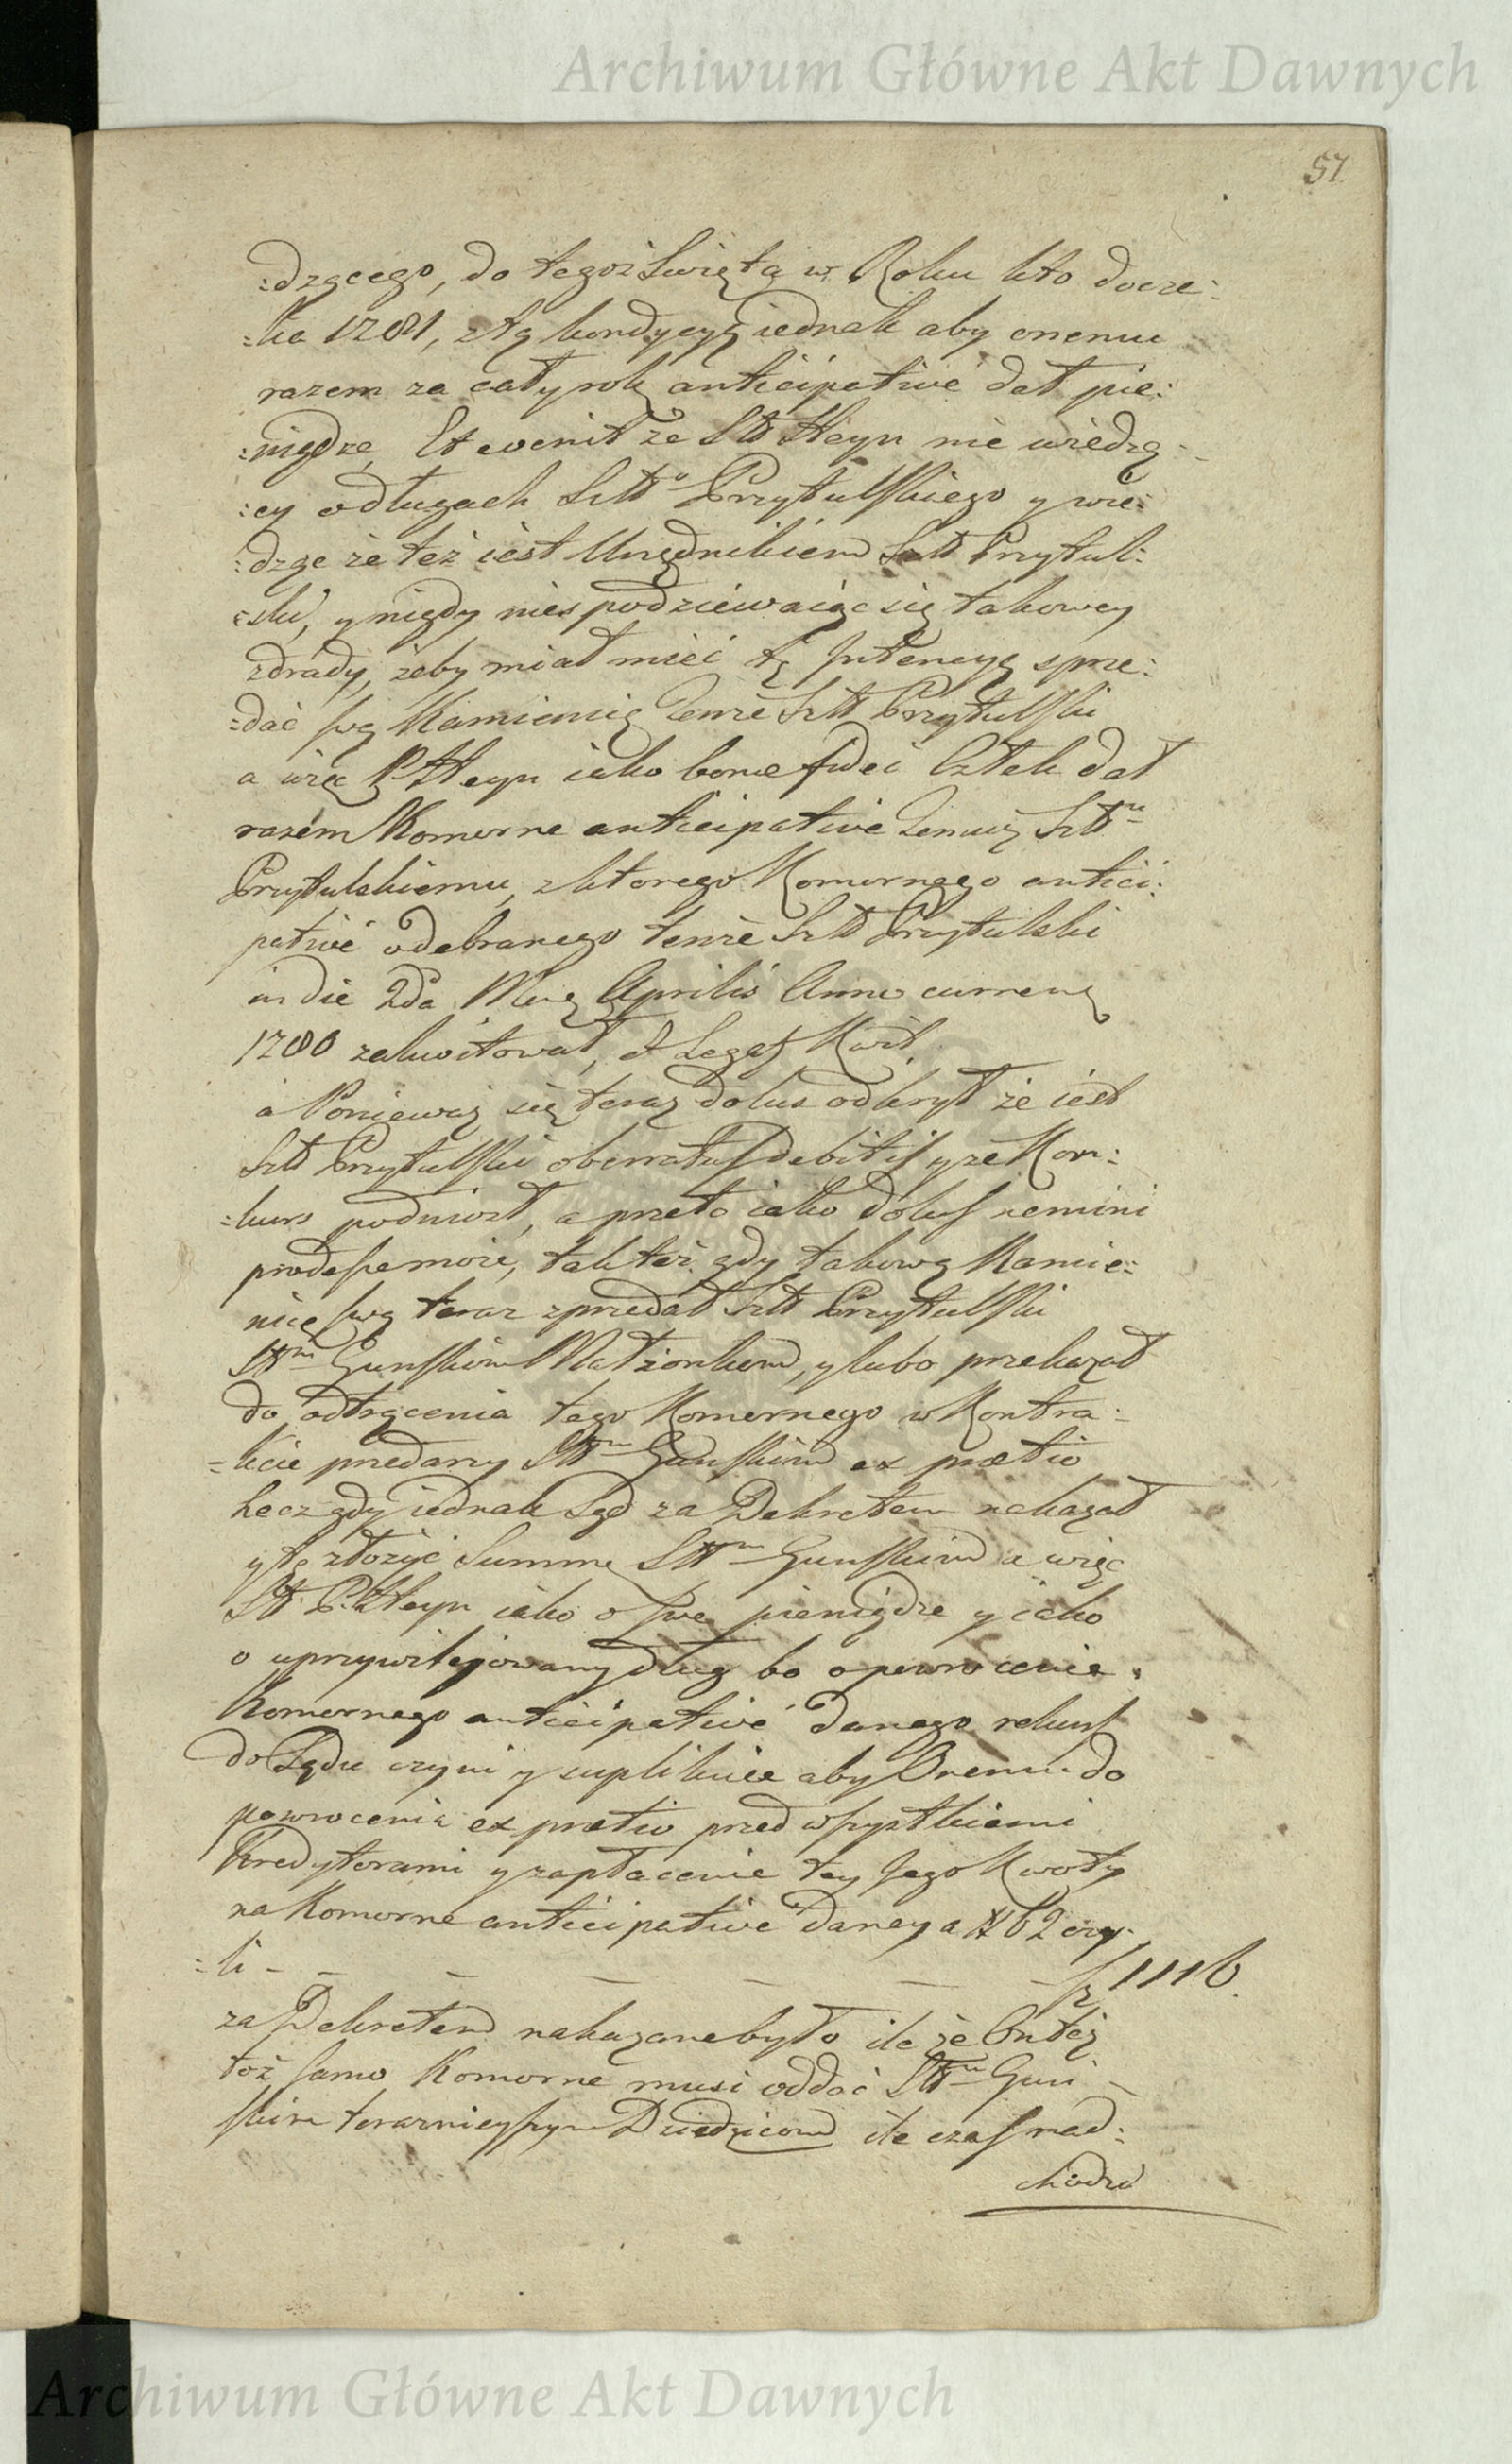 Archiwum Główne Akt Dawnych
57
:dzącego, do tegoż Swięta w Roku kto docze:
:ka 1781, z tą kondycyą iednak aby onemu
razem za cały rok anticipative dał pie:
:niądze, Et evenit że Stt Heyn nie wiedzą:
:cy o długach Sztto Przytulskiego y wie:
:dząc że też iest Urzędnikiem Sztt Przytul:
:ski, y nigdy niespodziewaiąc się takowey
zdrady, żeby miał mieć tę Intencyę sprze:
:dać swą Kamienicę Tenże Sztt Przytulski
a więc P Heyn iako bonae fidei Człek dał
razem Komorne anticipative Temuż Szttu
Przytulskiemu, z ktorego Komornego antici:
pative odebranego tenże Sztt Przytulski
in die 2da Mens Aprilis Anno currens
1780 zakwitował, et Legat Kwit
a Ponieważ się teraz dolus odkrył że iest
Sztt Przytulski oberratus debitis y że Kon:
:kurs podniosł, a przeto iako dolus nemini
prodesse może, tak też gdy takową Kamie:
nicę swą teraz zprzedał Sztt Przytulski
Sttm Gunskim Małżonkom, y lubo przekazał
do odtrącenia tego Komornego w Kontra:
:kcie przedaży Sttm Gunskim ex praetio
Lecz gdy iednak Sąd za Dekretem nakazał
y tę złożyć Summę Sttm Gunskim a więc
Stt P. Heyn iako o swe pieniądze y iako
o uprzywilejowany dług bo o powrocenie
Komornego anticipative danego rekurs
do Sądu czyni y suplikuie aby Onemu do
powrocenia ex praetio przed wszystkiemi
Kredytorami y zapłacenie tey Jego Kwoty
na Komorne anticipative daney a # 62 czy:
:li - - - - - - - fl 1116.
za Dekretem nakazane było ile że Onteż
toż samo Komorne musi oddać Sttm Gun:
skim teraznieyszym Dziedzicom ile czas nad:
chodzi
Archiwum Główne Akt Dawnych